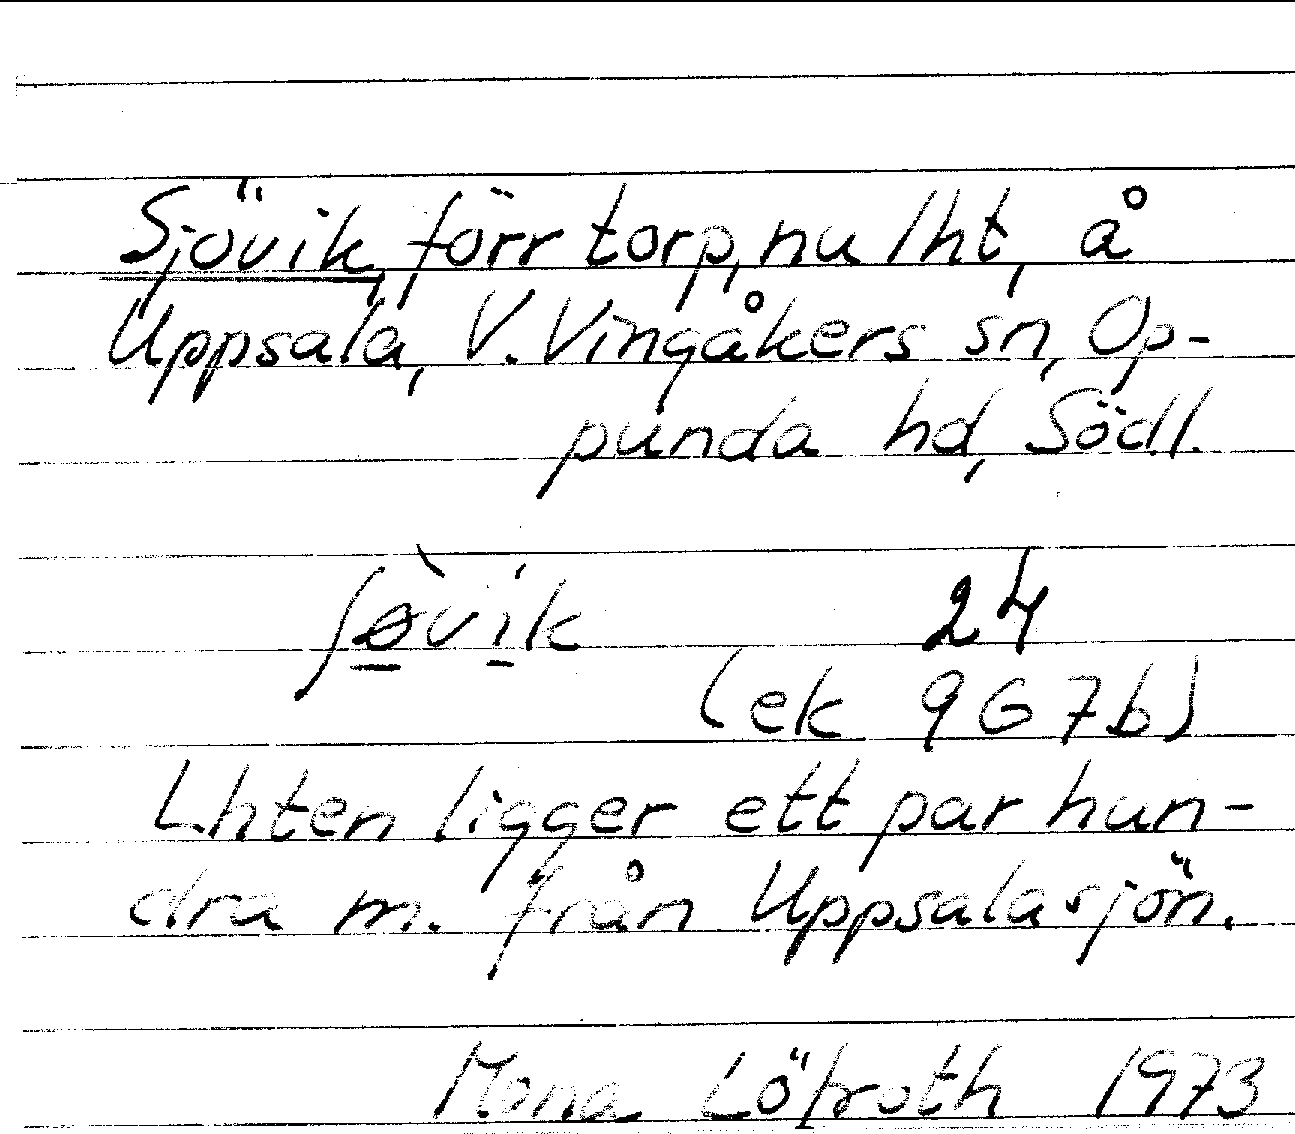 Sjövik, förr torp, nu lht, å
Uppsala, V. Vingåkers sn, Op-
punda hd, Södl.
ʃø̀vik 24
(ek 9G7b)
Lhten ligger ett par hun-
dra m. från Uppsalasjön.
Mona Löfroth 1973